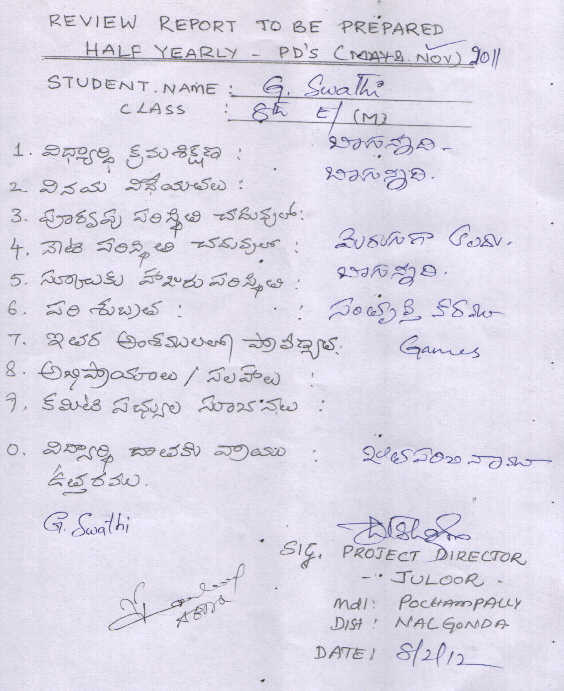 REVIEW REPORT TO BE PREPARED
HALF YEARLY - PD'S (MAY & NOV) 2011
STUDENT. NAME : G. Swathi
CLASS : 8th E/ (M)
1. విద్యార్థి క్రమశిక్షణ : బాగున్నది.
2. వినయ విధేయతలు : బాగున్నది.
3. పూర్వపు పరిస్థితి చదువులో:
4. నేటి పరిస్థితి చదువులో : మెరుగుగా ఉంది.
5. స్కూలుకు హాజరు పరిస్థితి : బాగున్నది.
6. పరిశుభ్రత : సంతృప్తి కరము
7. ఇతర అంశములలో ప్రావీణ్యత. Games
8. అభిప్రాయాలు / సలహాలు :
9. కమిటి సభ్యుల సూచనలు :
0. విద్యార్థి దాతకు వ్రాయు : జతపరచినాము
ఉత్తరము.
G. Swathi
SIG. PROJECT DIRECTOR
- JULOOR -
Mdl: POCHAMPALLY
DIST : NALGONDA
DATE: 8/2/12